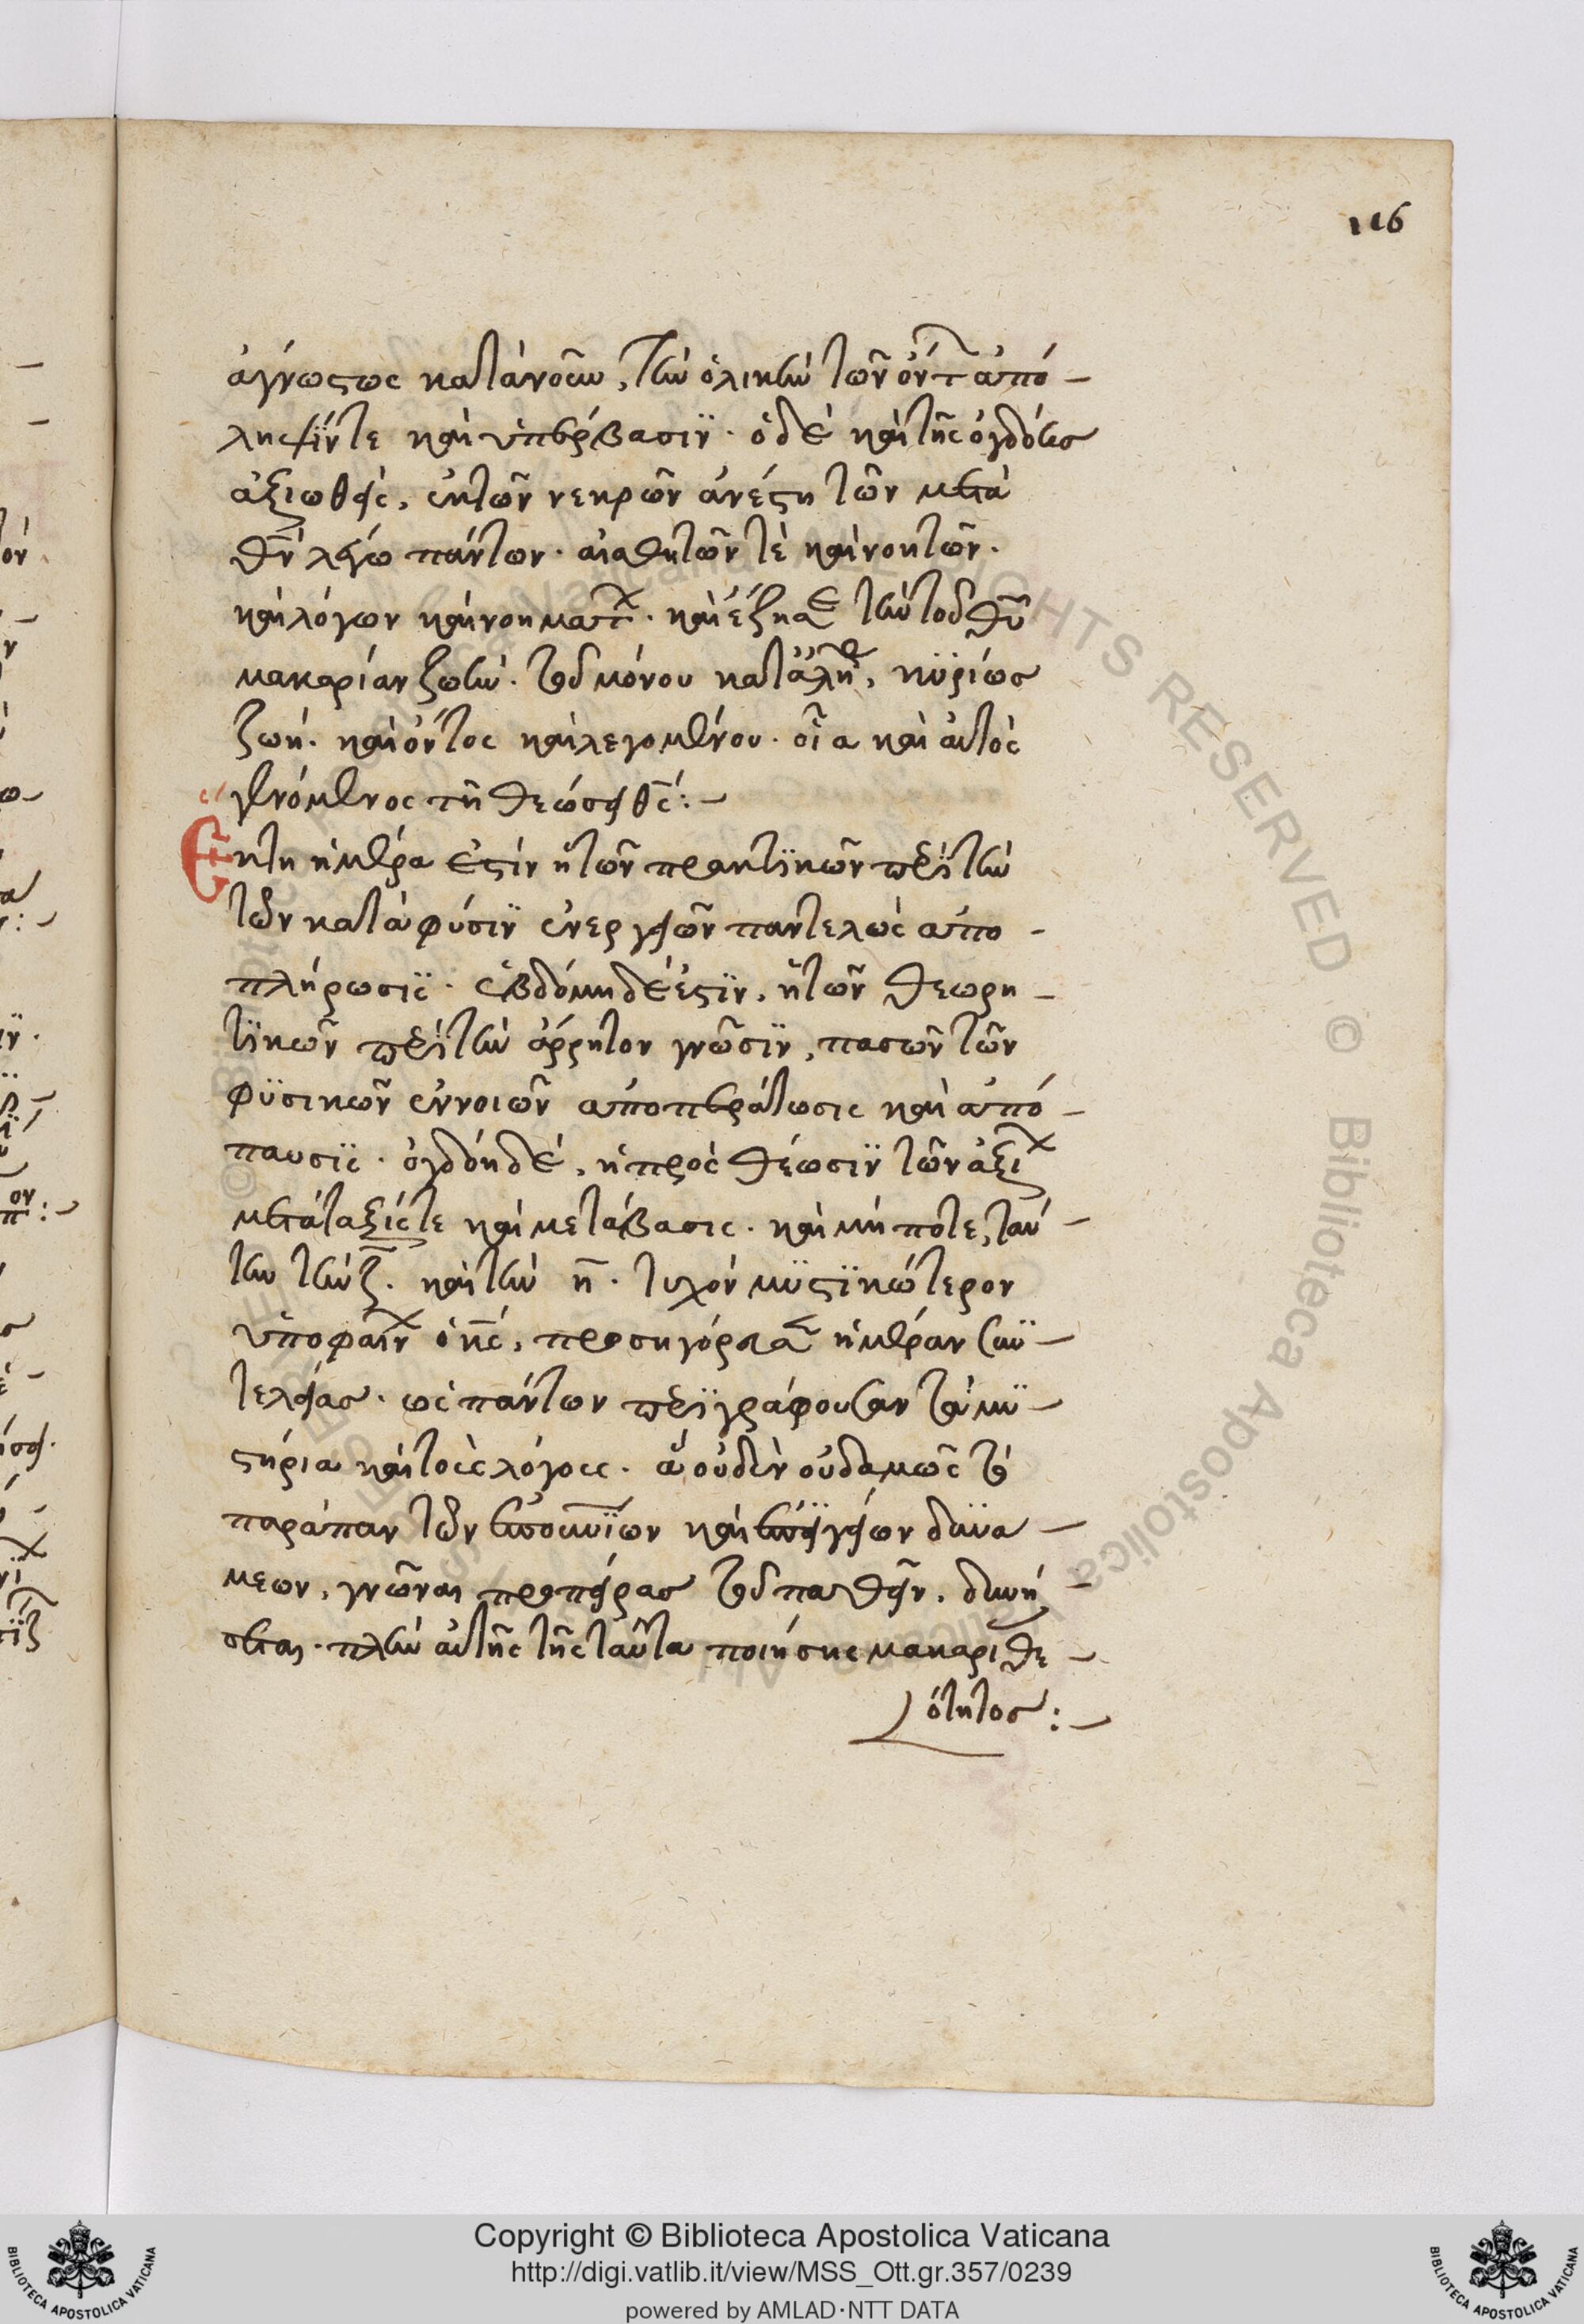 116
ἀγνώστως κατανοῶν, τὴν ὁλικὴν τῶν ὄντ(ων) ἀπό-
ληψίν τε καὶ ὑπέρβασιν. ὁ δὲ καὶ τῆς ὀγδόης
ἀξιωθεὶς, ἐκ τῶν νεκρῶν ἀνέστη τῶν μετὰ
θ̅ν̅ λέγω πάντων. αἰσθητῶν τὲ καὶ νοητῶν.
καὶ λόγων καὶ νοημάτ(ων). καὶ ἔζησε τὴν τοῦ θ̅υ̅
μακαρίαν ζωὴν. τοῦ μόνου κατ' ἀλήθ, κυρίως
ζωή. καὶ ὄντος καὶ λεγομένου. οἷα καὶ αὐτὸς
γενόμενος τῆ θεώσει θ̅ς̅:-
Ἕκτη ἡμέρα ἐστίν ἡ τῶν πρακτικῶν περὶ τὴν
τῶν κατὰ φύσιν ἐνεργειῶν παντελὼς ἀπο-
πλήρωσις. ἑβδόμη δέ ἐστιν, ἡ τῶν θεωρη-
τικῶν περὶ τὴν ἄρρητον γνῶσιν, πασῶν τῶν
φυσικῶν ἐννοιῶν ἀποπεράτωσις καὶ ἀπό-
παυσις. ὀγδόη δὲ, ἡ πρὸς θέωσιν τῶν ἀξί(ων)
μετάταξίς τε καὶ μετάβασις. καὶ μή ποτε, ταύ-
την τὴν ζ̅. καὶ τὴν η̅. τυχὸν μυστικώτερον
ὑποφαίν(ων) ὁ κ̅ς̅, προσηγόρευσεν ἡμέραν συν-
τελείας. ὡς πάντων περιγράφουσαν τὰ μυ-
στήρια καὶ τοὺς λόγους. ἃ οὐδὲν οὐδαμῶς τὸ
παράπαν τῶν ἐπουρανίων καὶ ἐπιγείων δυνά-
μεων, γνῶναι πρὸ πείρας τοῦ παθεῖν, δυνή-
σεται. πλὴν αὐτῆς τῆς ταῦτα ποιήσης μακαρι θε-
ότητος:-
Copyright © Biblioteca Apostolica Vaticana
http://digi.vatlib.it/view/MSS_Ott.gr.357/0239
powered by AMLAD·NTT DATA